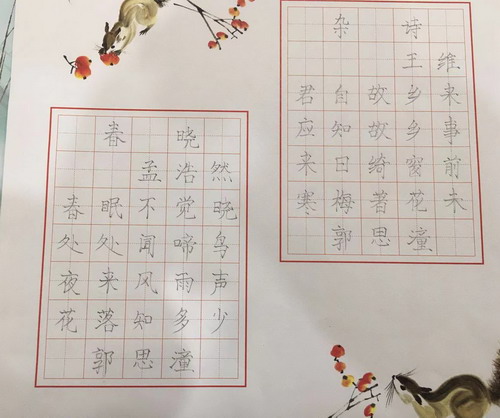 春晓
孟浩然
春眠不觉晓
处处闻啼鸟
夜来风雨声
花落知多少
郭思潼
杂诗
王维
君自故乡来
应知故乡事
来日绮窗前
寒梅著花未
郭思潼